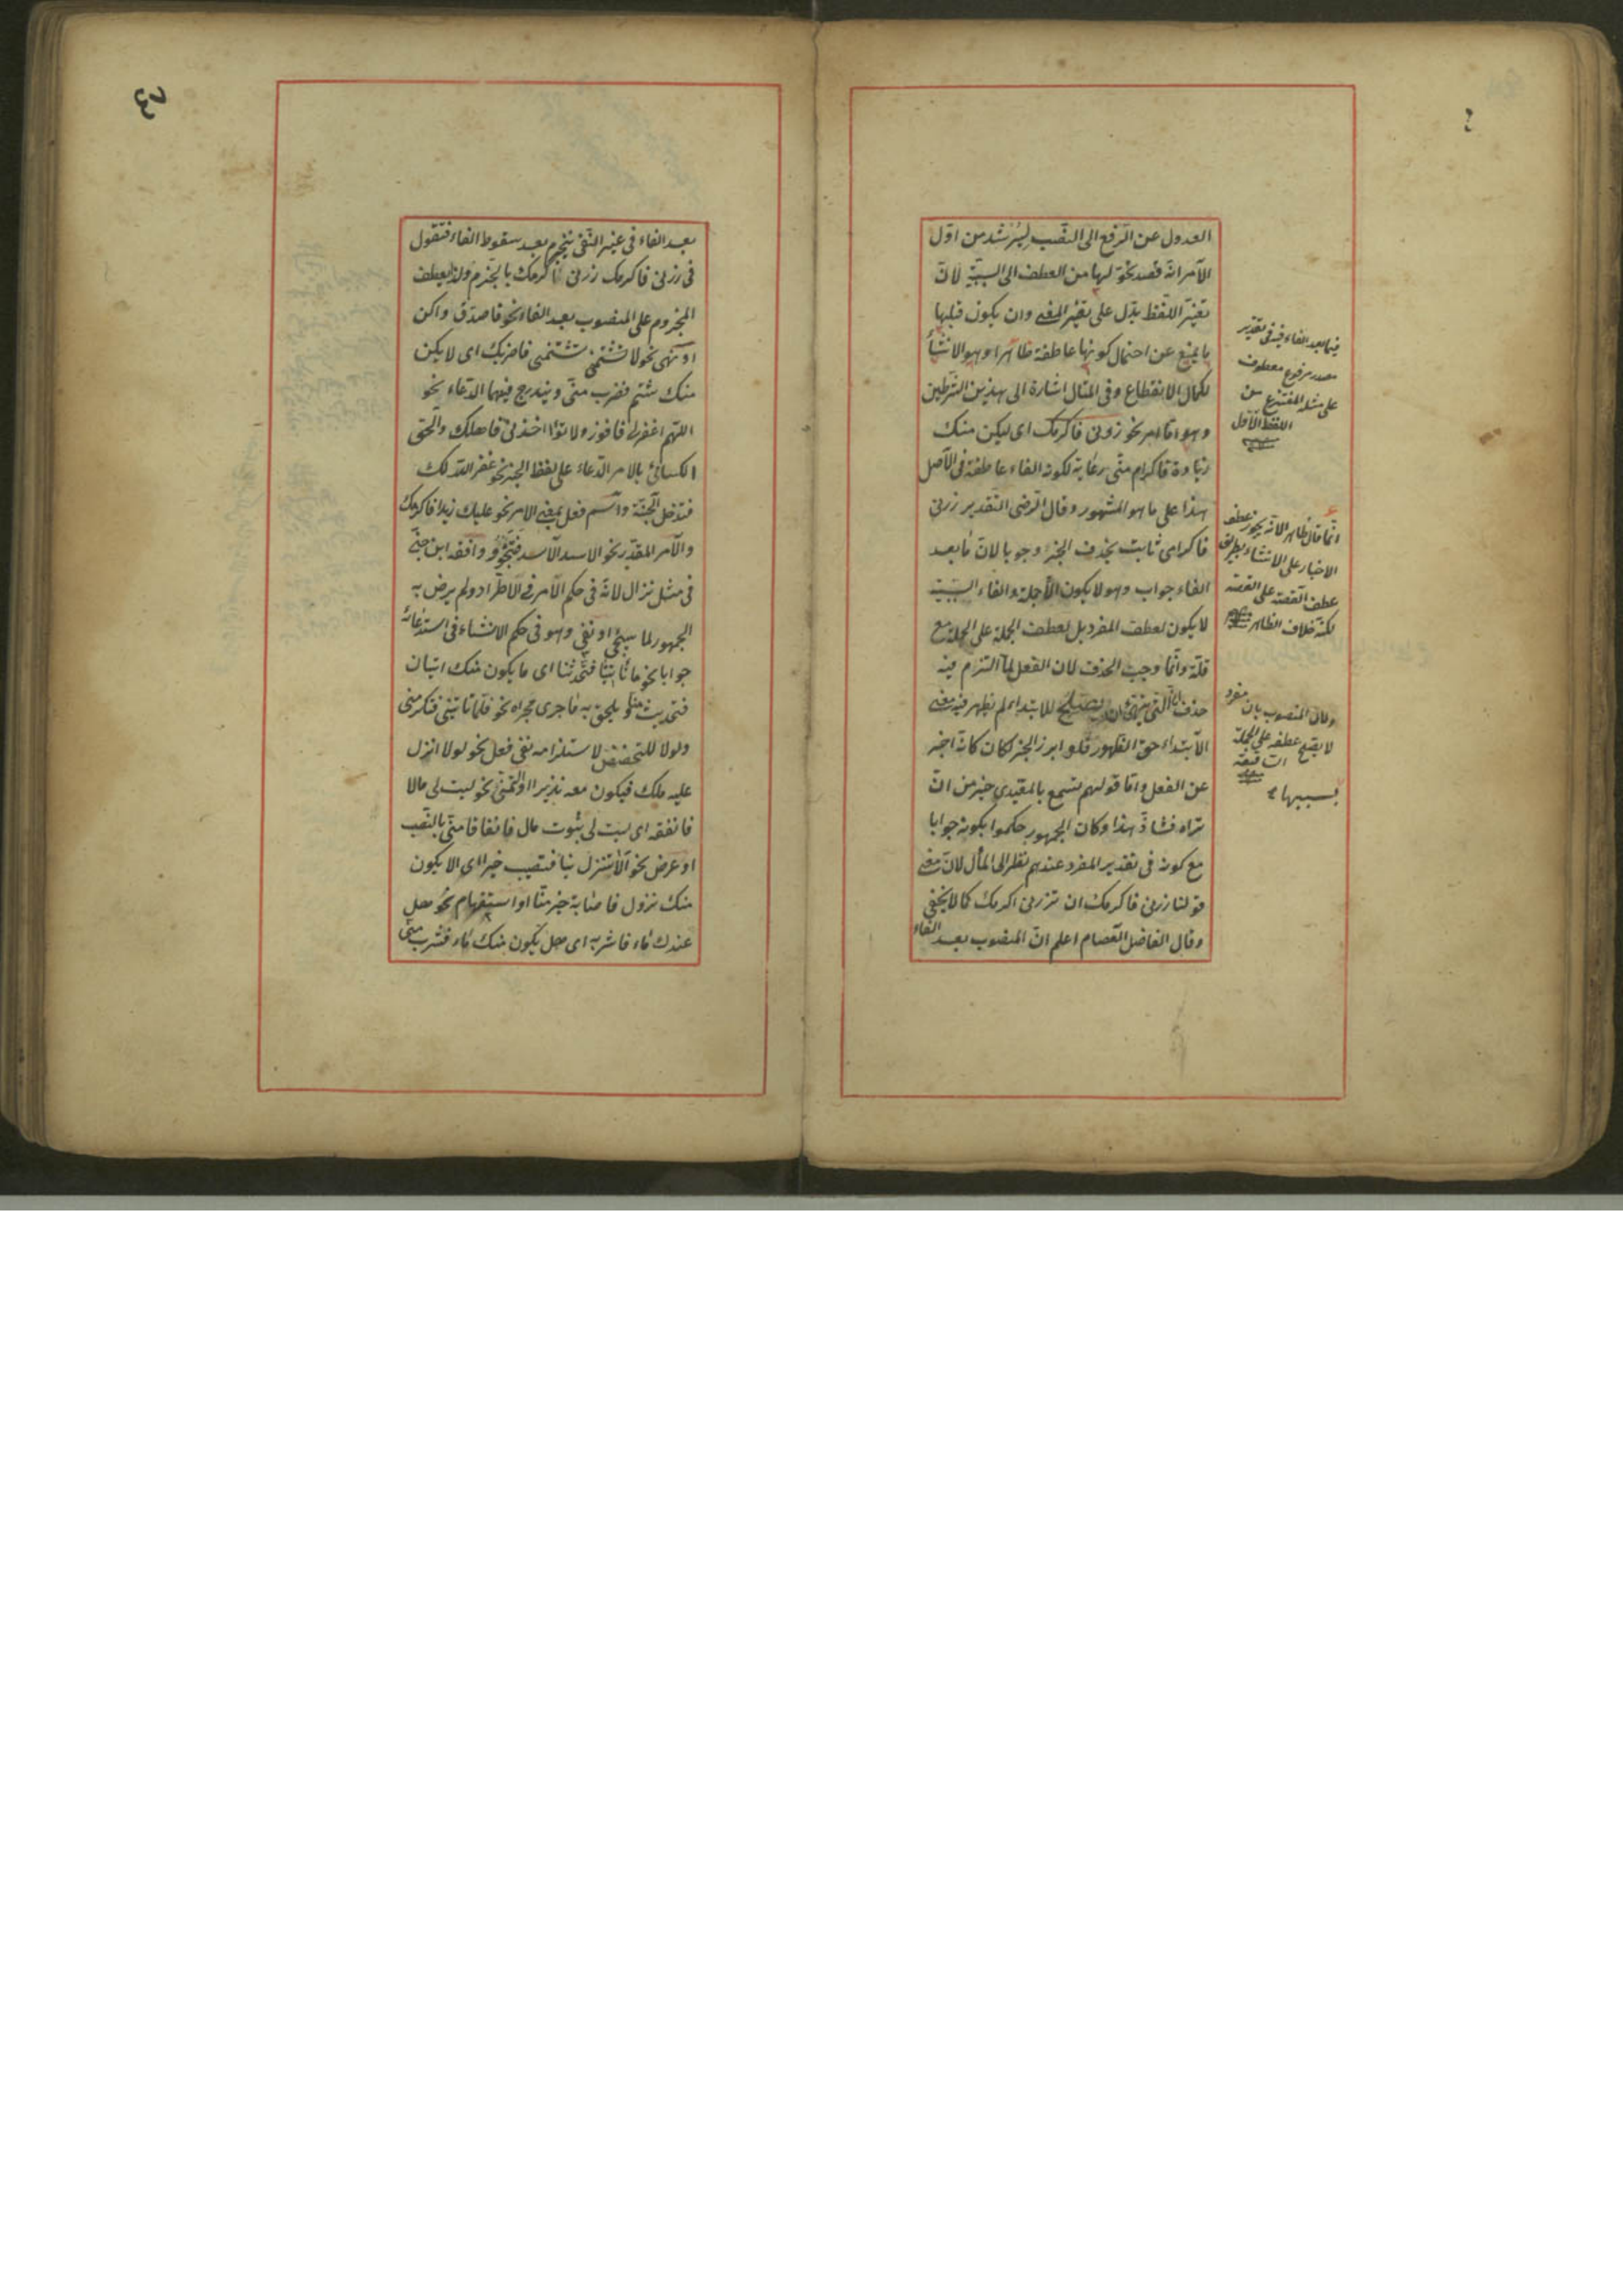 العدول عن الرفع الى النصب ليسترشد من اول
الامر انه قصد تحولها من العطف الى السببية لان
تغير اللفظ يدل على تغير المعنى وان يكون قبلها
ما يمنع عن احتمال كونها عاطفة ظاهرا وهو الانشاء
لكمال الانقطاع وفى المثال اشارة الى هذين الشرطين
وهو اما امر نحو زرنى فاكرمك اى ليكن منك
زيادة فاكرام منى رعاية لكونه الفاء عاطفة فى الاصل
هذا على ما هو المشهور وقال الرضى التقدير زرنى
فاكرامى ثابت بحذف الخبر وجوبا لان ما بعد
الفاء جواب وهو لا يكون الا جملة والفاء السببية
لا يكون لعطف المفرد بل لعطف الجملة على الجملة مع
قلة وانما وجب الحذف لان الفعل لما التزم فيه
حذف ان التى للابتداء لم يظهر فيه معنى
الابتداء حق الظهور فلو ابرز الخبر لكان كانه اخبر
عن الفعل واما قولهم تسمع بالمعيدى خير من ان
تراه فشاذ هذا وكان الجمهور حكموا بكونه جوابا
مع كونه فى تقدير المفرد عندهم نظر الى المأل لان معنى
قولنا زرنى فاكرمك ان تزرنى اكرمك كما لا يخفى
وقال الفاضل العصام اعلم ان المنصوب بعد الفاء
فيما بعد الفاء فيه فى تقدير
مصدر مرفوع معطوف
على مثله المنتزع من
اللفظ الاول
انما قال ظاهر الانه يجوز عطف
الاخبار على الانشاء بطريق
عطف القصة على القصة
لكنه خلاف الظاهر
ولان المنصوب بان مفرد
لا يصح عطفه على الجملة
بسببها
٣
بعد الفاء فى غير النفى ينجزم بعد سقوط الفاء فتقول
فى زرنى فاكرمك زرنى اكرمك بالجزم ولذا يعطف
المجزوم على المنصوب بعد الفاء نحو فاصدق واكن
او نهى نحو لا تشتمنى فاضربك اى لا يكن
منك شتم فضرب منى ويندرج فيهما الدعاء نحو
اللهم اغفرلى فافوز ولا تؤاخذنى فاهلك والحق
الكسائى بالامر الدعاء على لفظ الخبر نحو غفر الله لك
فتدخل الجنة واسم فعل بمعنى الامر نحو عليك زيدا فاكرمك
والامر المقدر نحو الاسد الاسد فتنجو ووافقه ابن جنى
فى مثل نزال لانه فى حكم الامر فى الاطراد ولم يرض به
الجمهور لما سيجئ او نفى وهو فى حكم الانشاء فى استدعائه
جوابا نحو ما تأتينا فتحدثنا اى ما يكون منك اتيان
فتحديث ويلحق به ما جرى مجراه نحو قلما تأتينى فتكرمنى
ولولا للتحضيض لاستلزامه نفى فعل نحو لولا انزل
عليه ملك فيكون معه نذيرا او تمنى نحو ليت لى مالا
فانفقه اى ليت لى ثبوت مال فانفاقا منى بالنصب
او عرض نحو الا تنزل بنا فتصيب خيرا اى الا يكون
منك نزول فاصابة خير منا او استفهام نحو هل
عندك ماء فاشربه اى هل يكون منك ماء فشرب منى